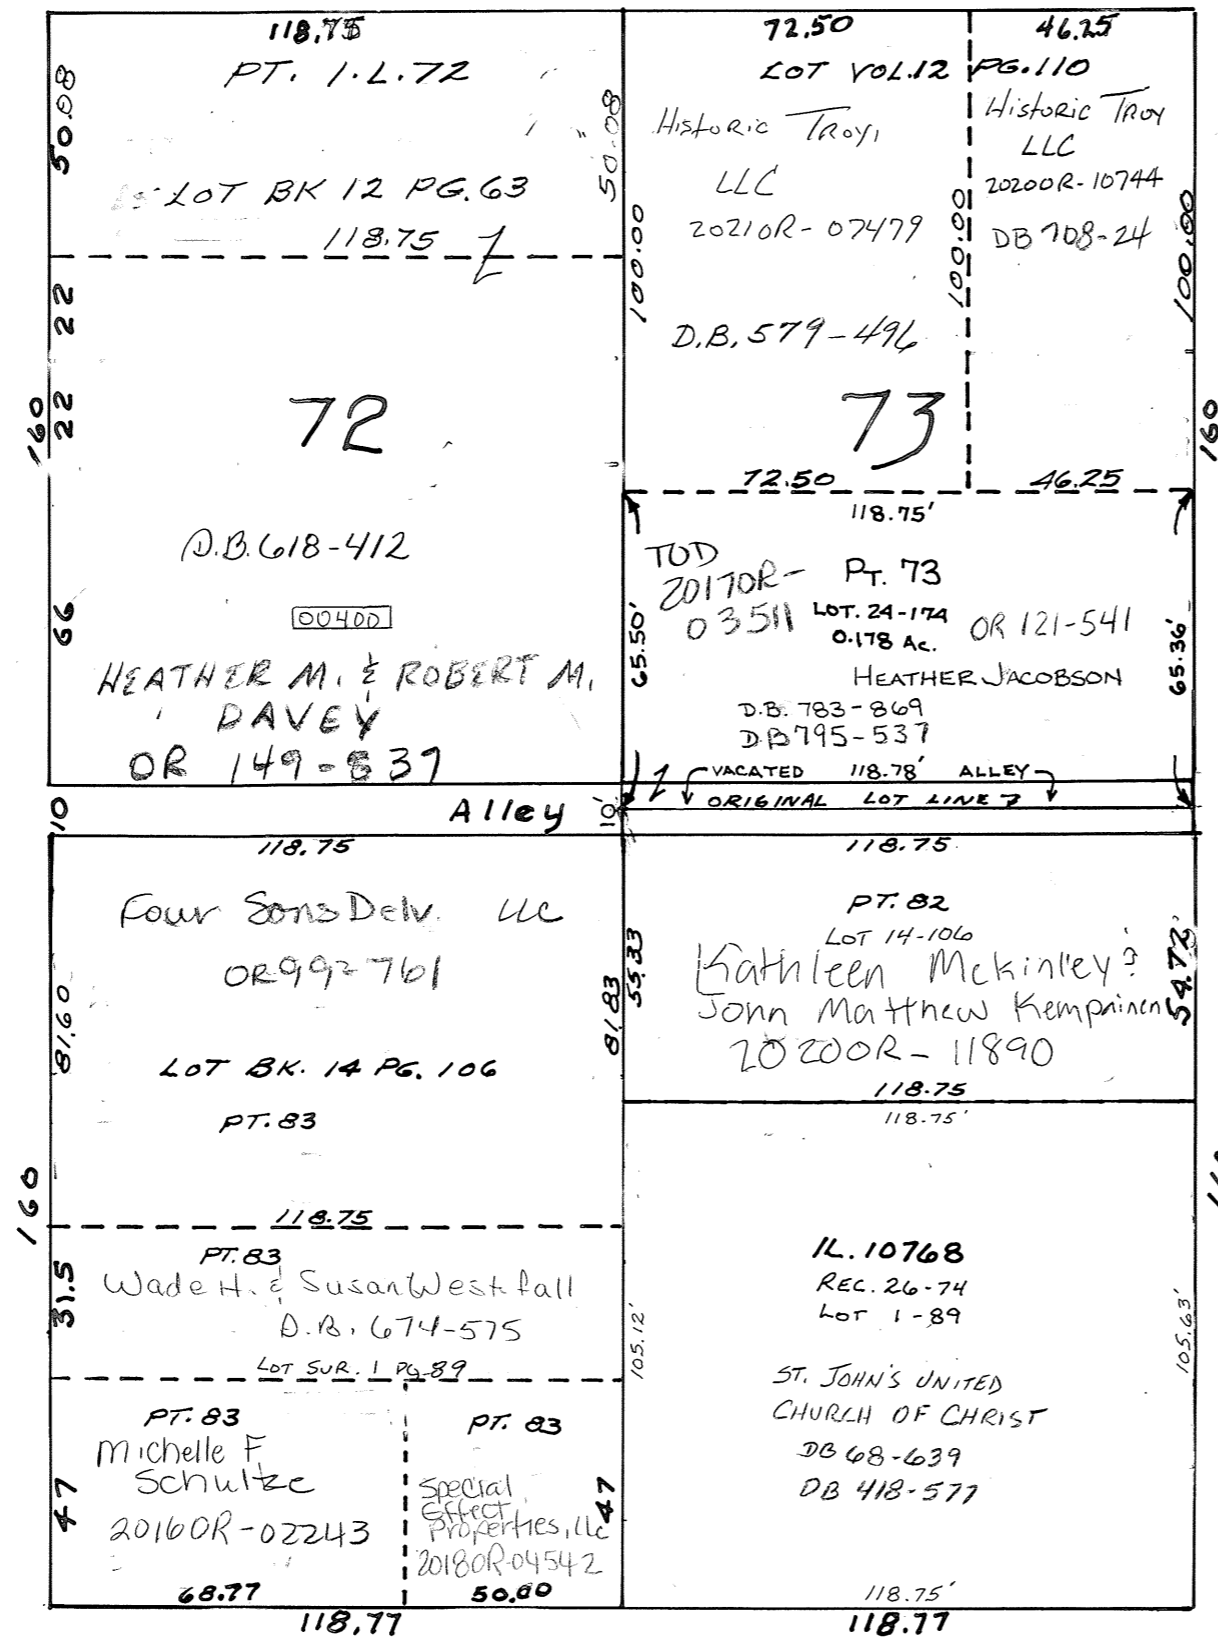 118.75
PT. I.L. 72
50.08
50.08
LOT BK 12 PG. 63
118.75
22
22
160
72
D.B. 618-412
00400
66
HEATHER M. & ROBERT M.
DAVEY
OR 149-837
72.50
46.25
LOT VOL.12 PG.110
Historic Troy,
LLC
2021OR-07479
D.B. 579-496
100.00
100.00
Historic Troy
LLC
2020OR-10744
DB 708-24
100.00
73
160
72.50
46.25
118.75'
TOD
2017OR-
03511
PT. 73
LOT. 24-174
0.178 Ac.
OR 121-541
65.50'
65.36'
HEATHER JACOBSON
D.B. 783-869
DB 795-537
VACATED 118.78' ALLEY
ORIGINAL LOT LINE
10
Alley
10'
118.75
Four Sons Delv. LLC
OR 992-761
81.60
81.83
LOT BK. 14 PG. 106
PT. 83
160
118.75
PT. 83
31.5
Wade H. & Susan Westfall
D.B. 674-575
LOT SUR. 1 PG-89
PT. 83
Michelle F
Schultze
2016OR-02243
47
68.77
PT. 83
Special
Effect
Properties, llc
2018OR-04542
47
50.00
118.77
118.75
PT. 82
LOT 14-106
55.33
54.72'
Kathleen Mckinley &
John Matthew Kempainen
2020OR-11890
118.75
118.75'
IL. 10768
REC. 26-74
LOT 1-89
105.12'
105.63'
ST. JOHN'S UNITED
CHURCH OF CHRIST
DB 68-639
DB 418-577
118.75'
118.77